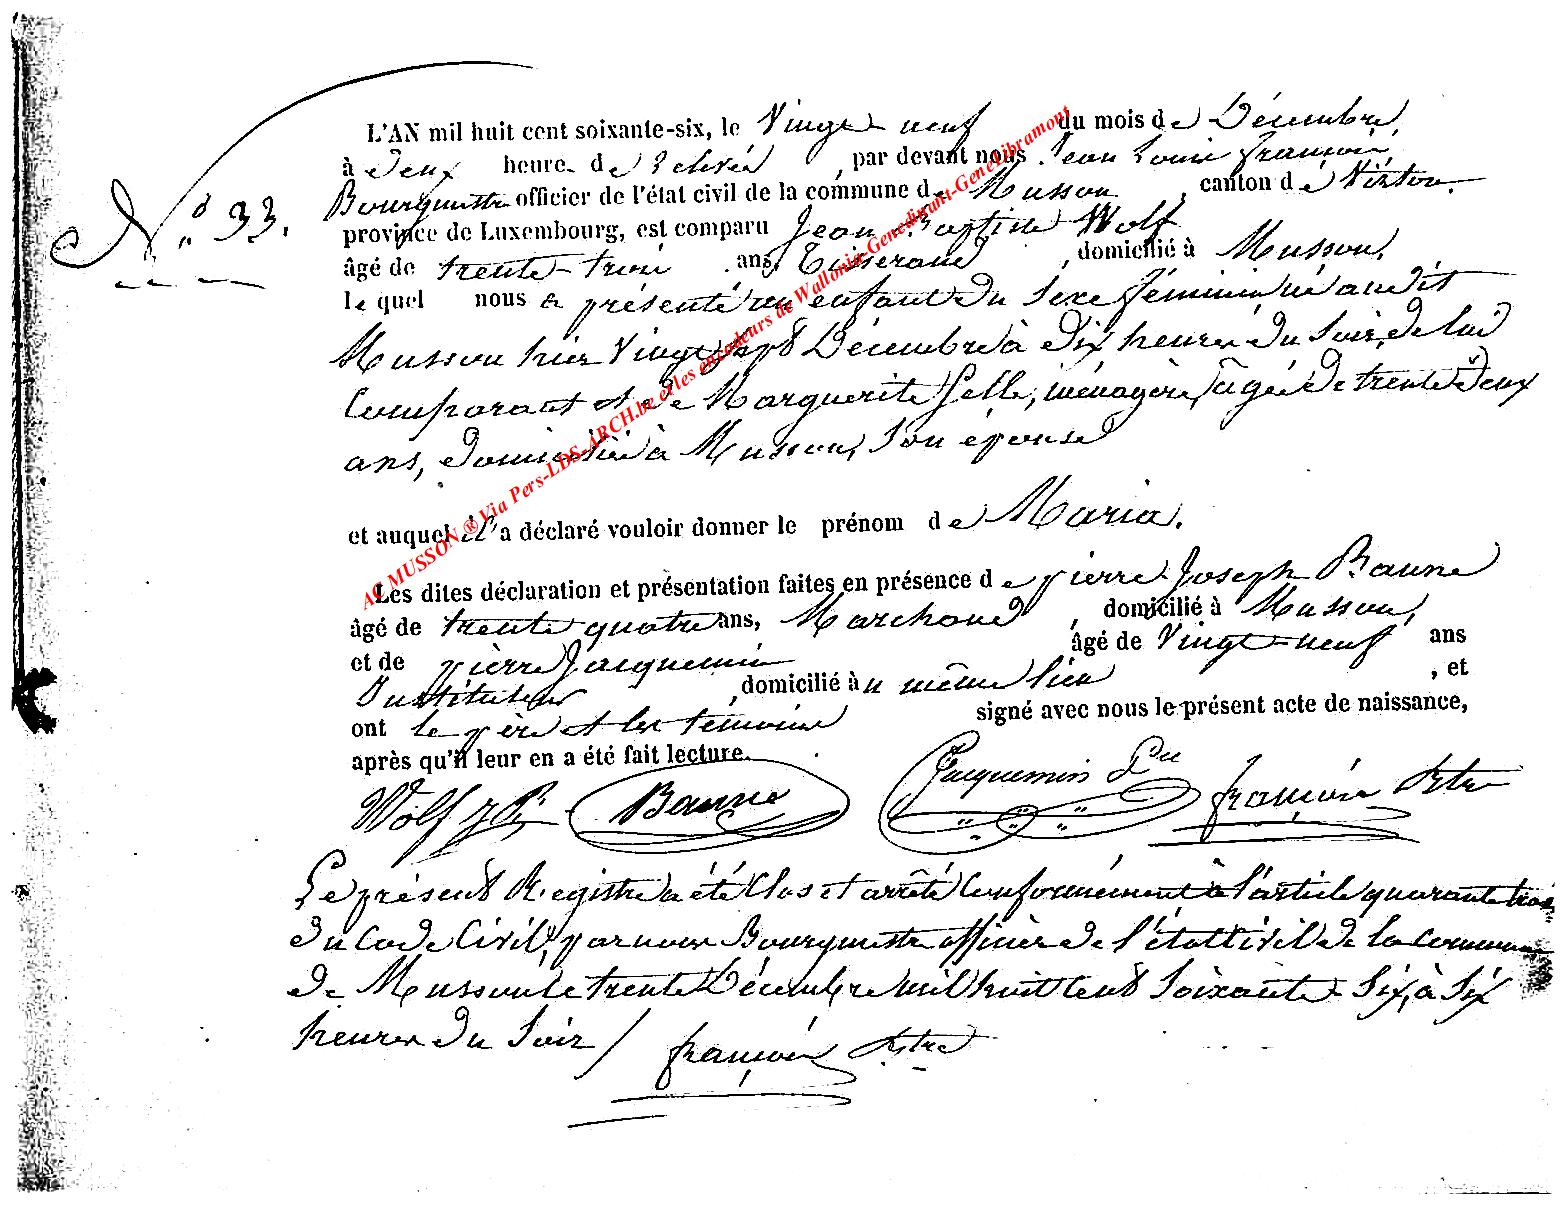 N° 33.
L'AN mil huit cent soixante-six, le Vingt-neuf du mois de Décembre,
à deux heures de relevée, par devant nous Jean Louis françois,
Bourgmestre officier de l'état civil de la commune de Musson, canton de Virton,
province de Luxembourg, est comparu Jean Wolf
âgé de trente-trois ans, Tisserand, domicilié à Musson,
lequel nous a présenté un enfant du sexe féminin né audit
Musson hier Vingt huit Décembre à dix heures du soir, de lui
Comparant et de Marguerite Gelle, ménagère, âgée de trente deux
ans, domiciliée à Musson, son épouse
et auquel il a déclaré vouloir donner le prénom de Maria.
Les dites déclaration et présentation faites en présence de pierre Joseph Baune
âgé de trente quatre ans, Marchand, domicilié à Musson,
et de pierre Jacquemin âgé de Vingt-neuf ans
Instituteur, domicilié au même lieu, et
ont le père et les témoins signé avec nous le présent acte de naissance,
après qu'il leur en a été fait lecture.
Wolf J B Baune Jacquemin Prre françois Bstre
Le présent Registre a été Clos et arrêté Conformément à l'article quarante trois
du Code Civil, par nous Bourgmestre officier de l'état Civil de la commune
de Musson le trente Décembre mil huit cent Soixante-Six, à Six
heures du soir / françois Bstre
AC MUSSON ® Via Pers-LDS-ARCH.be et les encodeurs de Wallonia-Genedinant-GeneLibramont